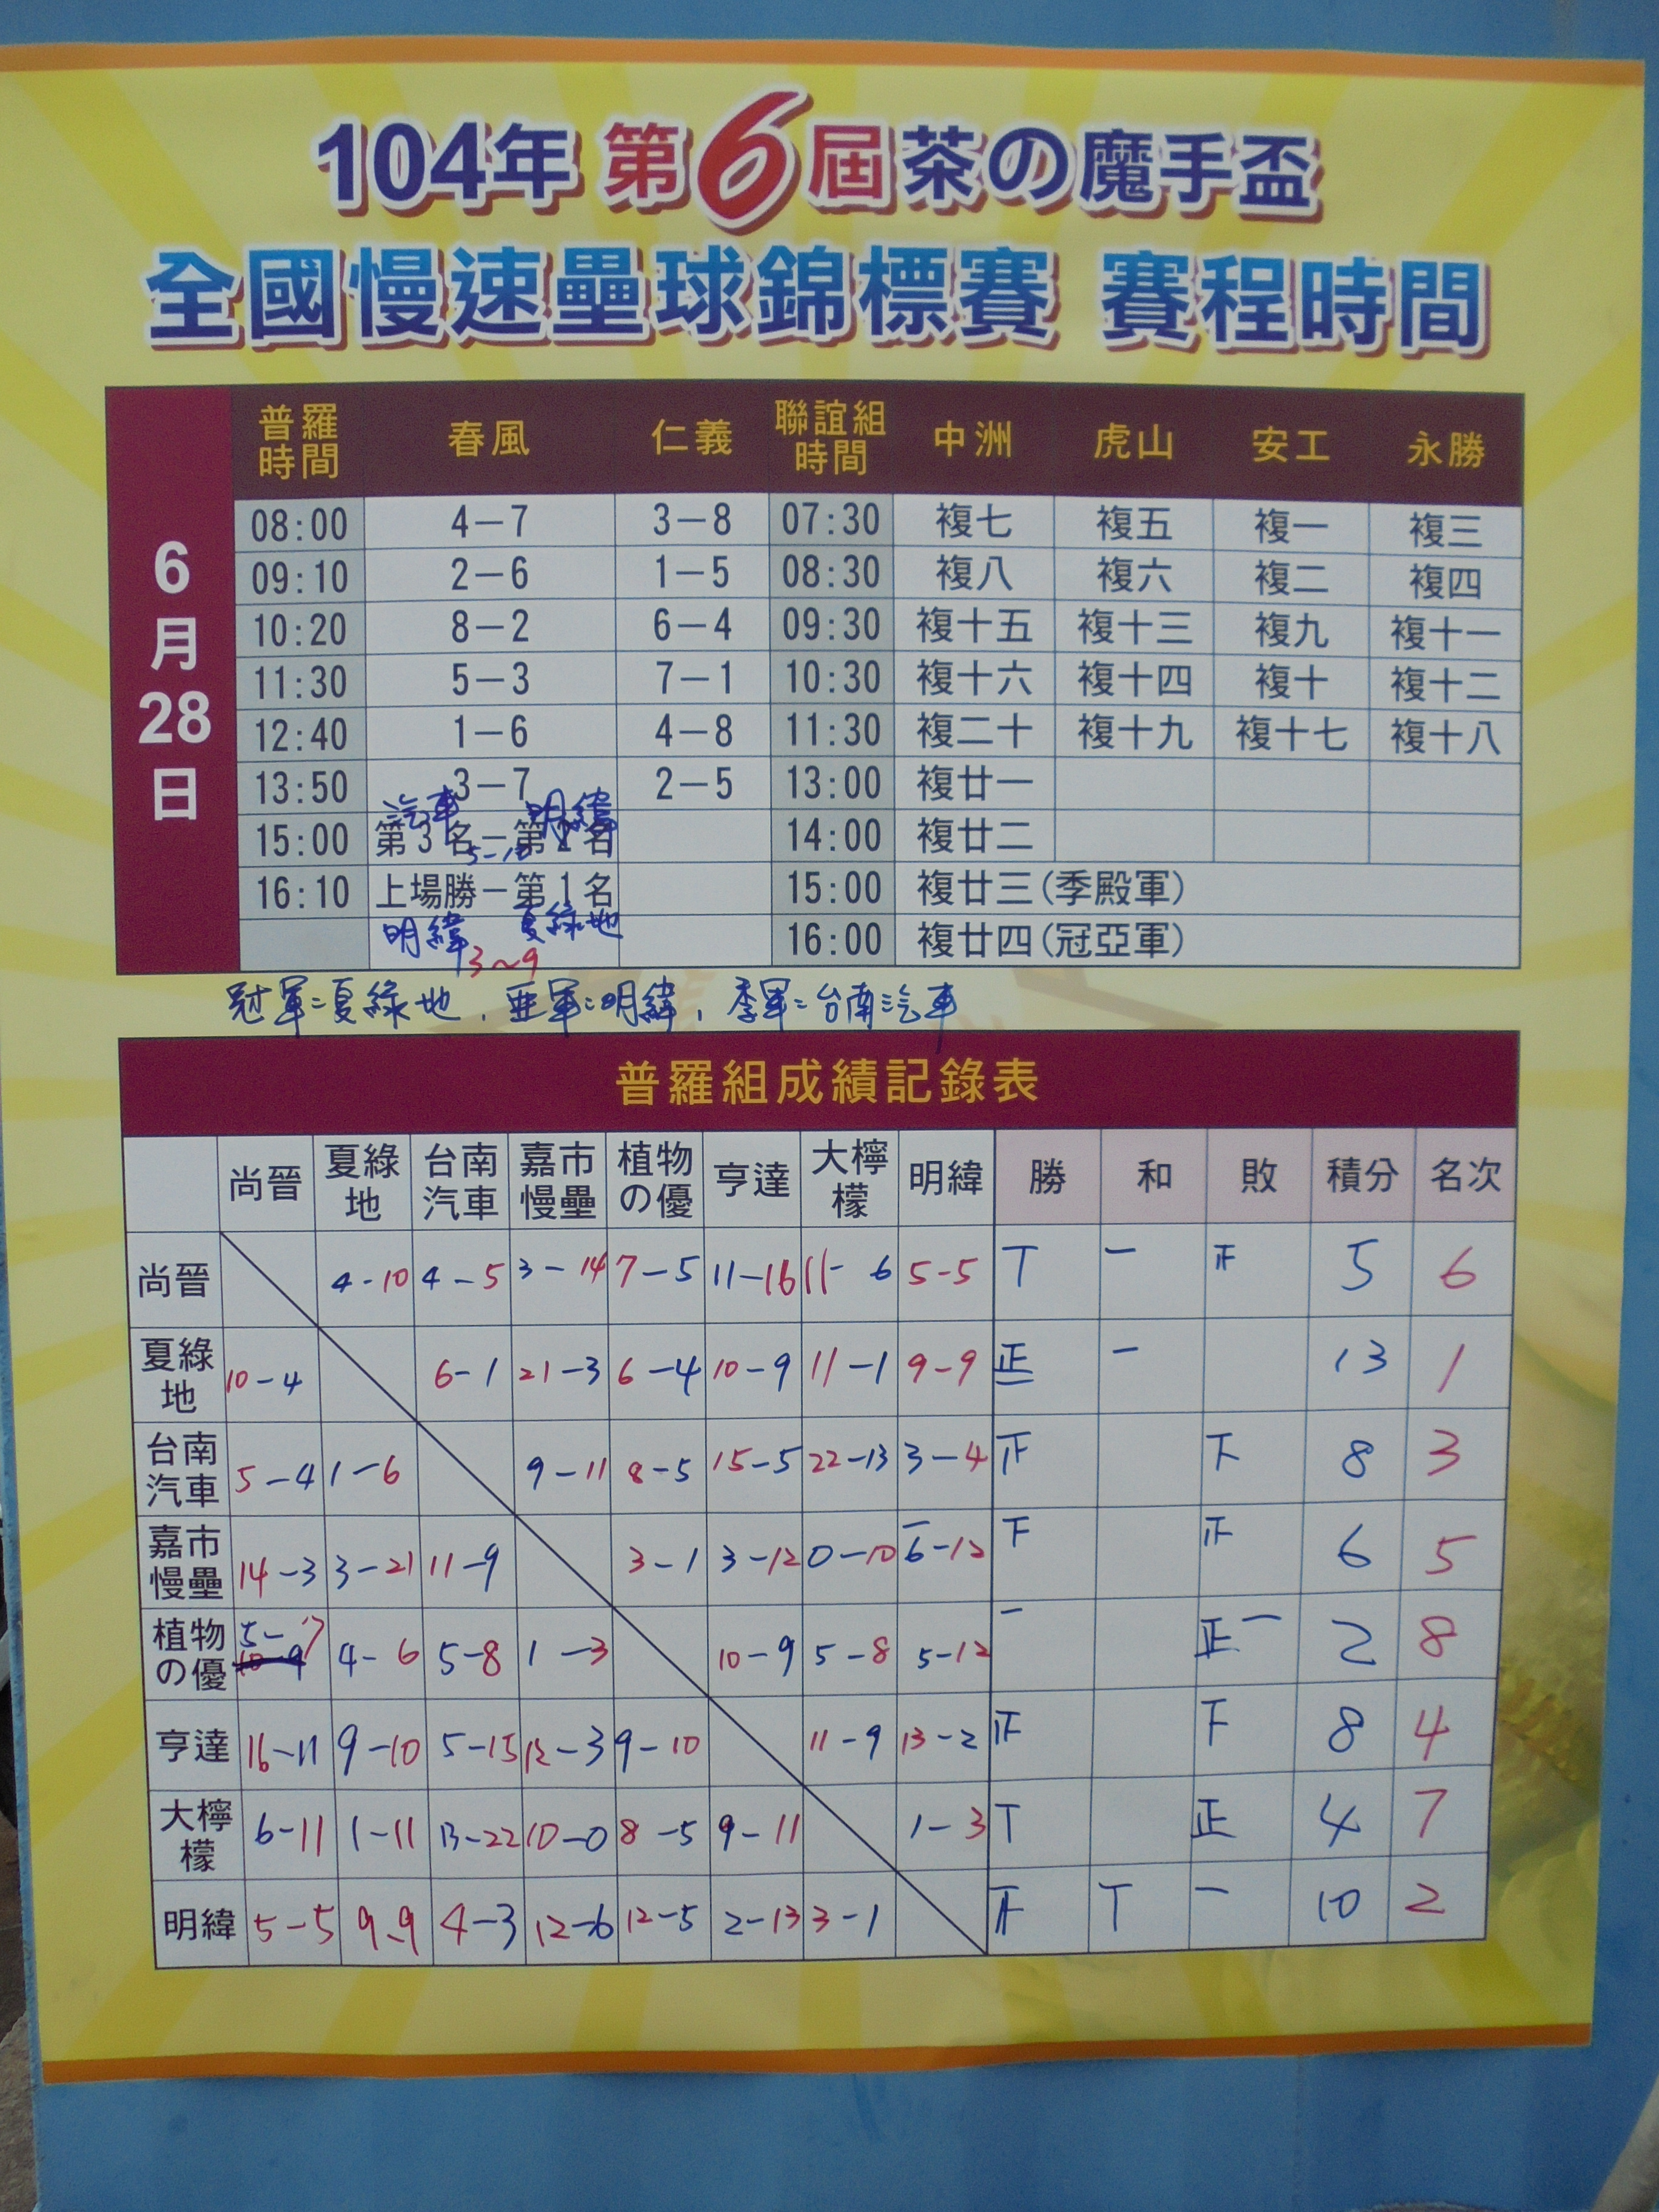 104年 第6屆茶の魔手盃
全國慢速壘球錦標賽 賽程時間
6月28日
普羅時間 春風 仁義 聯誼組時間 中洲 虎山 安工 永勝
08:00 4－7 3－8 07:30 複七 複五 複一 複三
09:10 2－6 1－5 08:30 複八 複六 複二 複四
10:20 8－2 6－4 09:30 複十五 複十三 複九 複十一
11:30 5－3 7－1 10:30 複十六 複十四 複十 複十二
12:40 1－6 4－8 11:30 複二十 複十九 複十七 複十八
13:50 3－7 2－5 13:00 複廿一
汽車 明緯
15:00 第3名－第2名 14:00 複廿二
5-10
16:10 上場勝－第1名 15:00 複廿三(季殿軍)
明緯 夏綠地 16:00 複廿四(冠亞軍)
3~9
冠軍=夏綠地, 亞軍=明緯, 季軍=台南汽車
普羅組成績記錄表
尚晉 夏綠地 台南汽車 嘉市慢壘 植物の優 亨達 大檸檬 明緯 勝 和 敗 積分 名次
尚晉 4-10 4-5 3-14 7-5 11-16 11-6 5-5 丅 一 𝍸 5 6
夏綠地 10-4 6-1 21-3 6-4 10-9 11-1 9-9 正一 一 13 1
台南汽車 5-4 1-6 9-11 8-5 15-5 22-13 3-4 𝍸 下 8 3
嘉市慢壘 14-3 3-21 11-9 3-1 3-12 0-10 6-12 下 𝍸 6 5
植物の優 5-7 10-9 4-6 5-8 1-3 10-9 5-8 5-12 一 正一 2 8
亨達 16-11 9-10 5-15 12-3 9-10 11-9 13-2 𝍸 下 8 4
大檸檬 6-11 1-11 13-22 10-0 8-5 9-11 1-3 丅 正 4 7
明緯 5-5 9-9 4-3 12-6 12-5 2-13 3-1 𝍸 丅 一 10 2